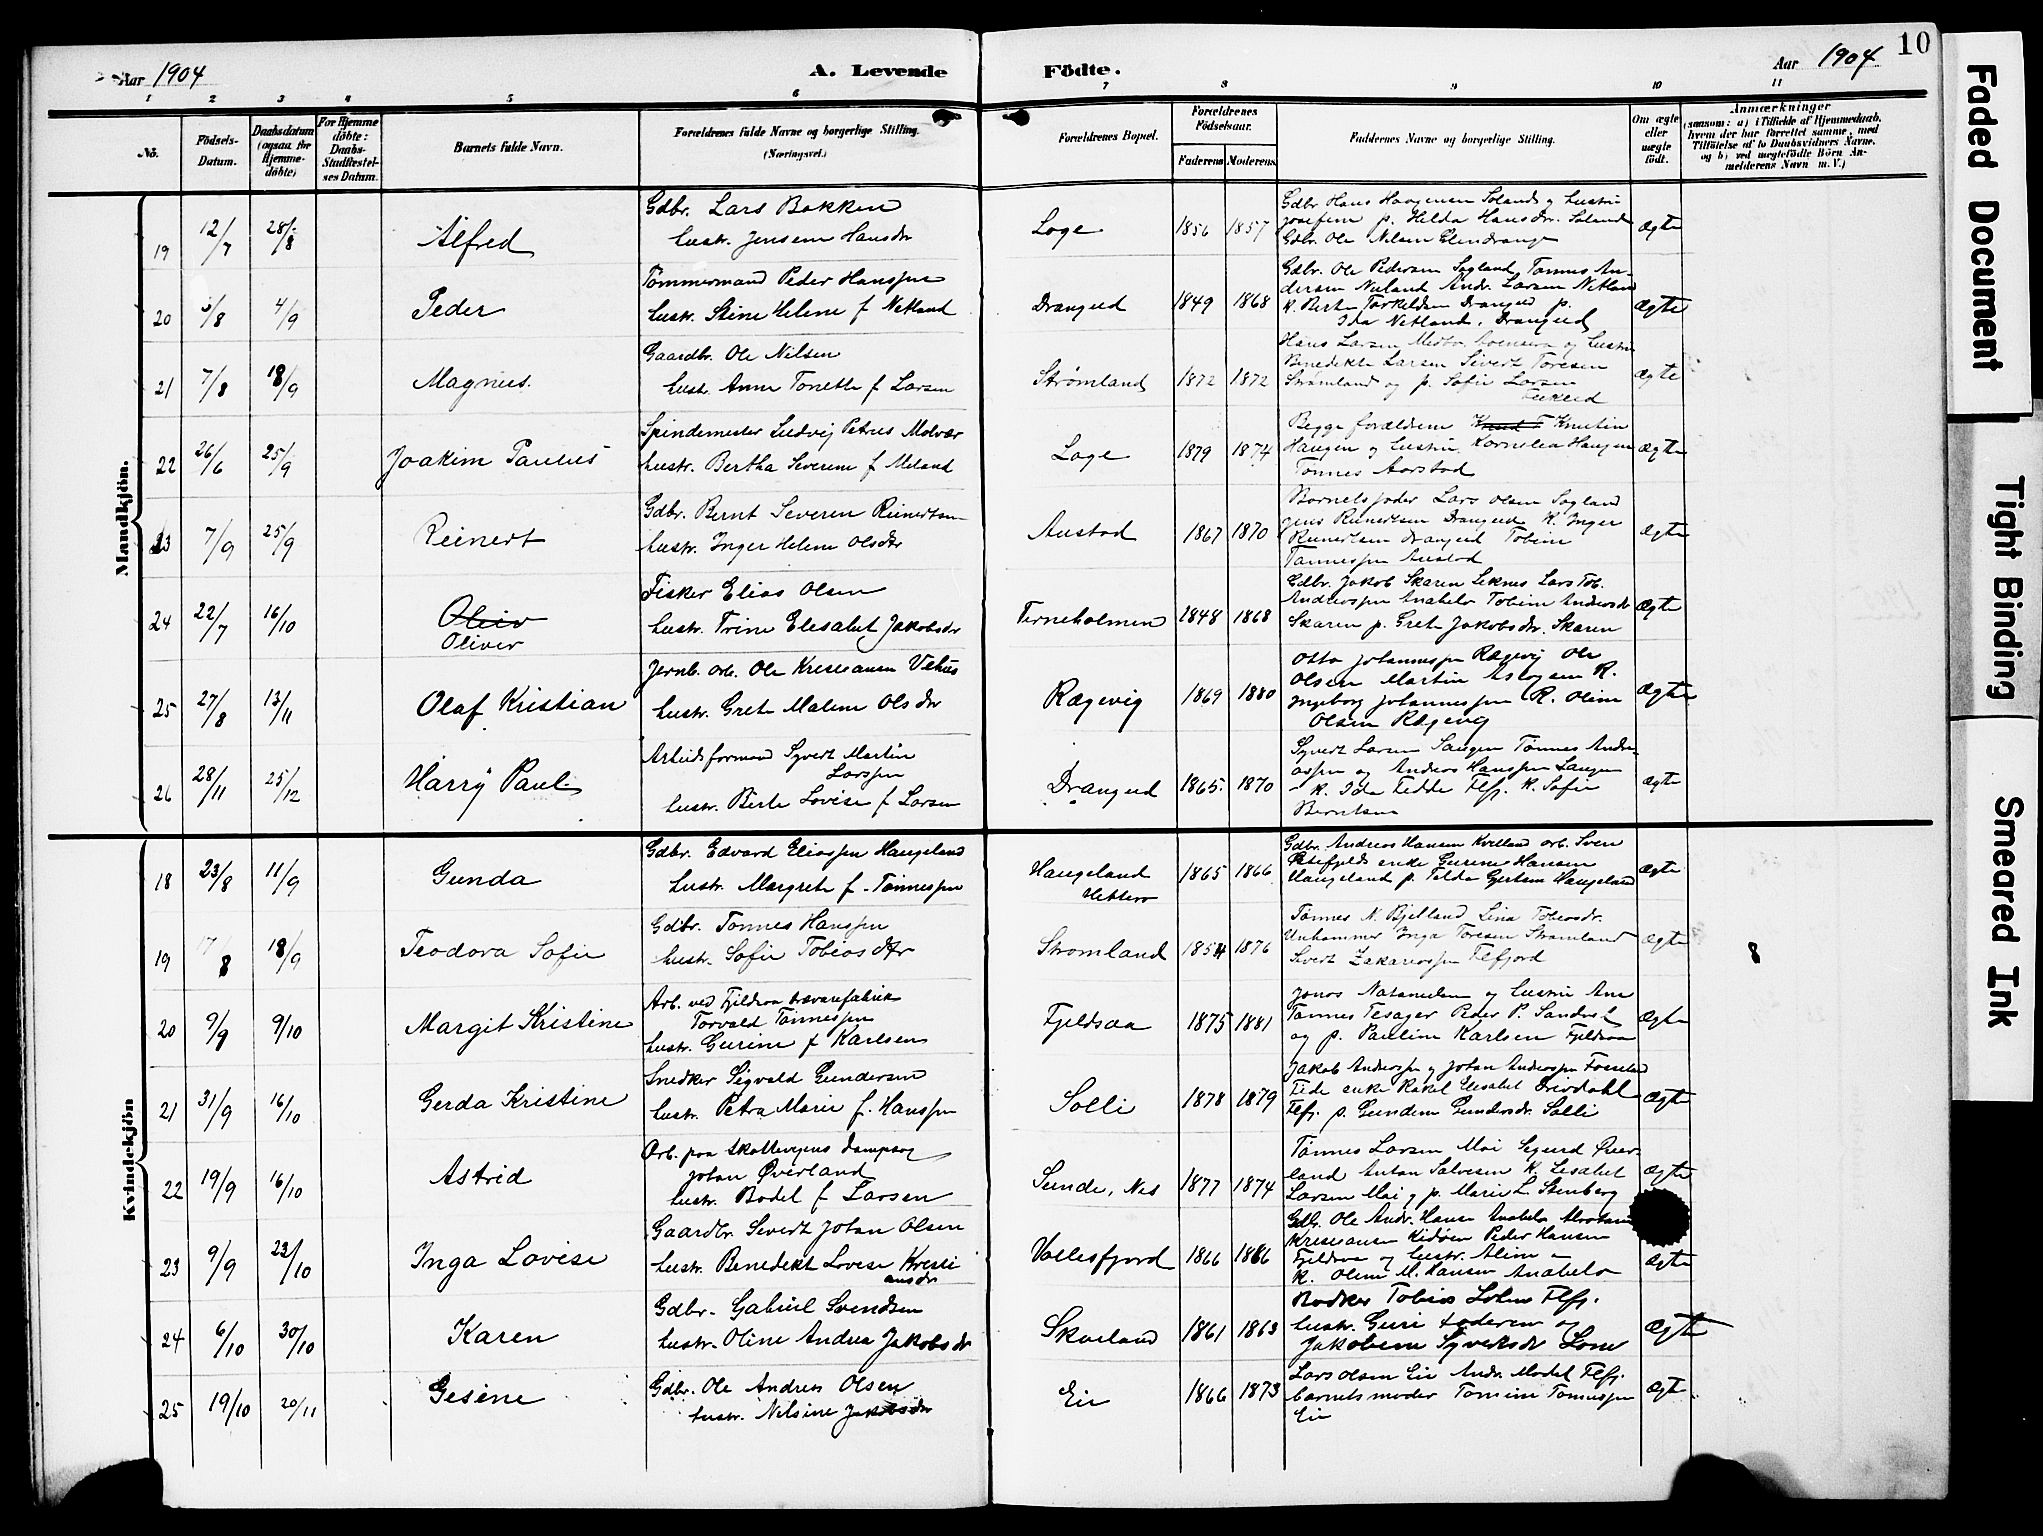 Aar 1904
A. Levende
Födte.
Aar 1904
10
1 2 3 4 5 6 7 8 9 10 11
No.
Födsels-
Datum.
Daabsdatum
(ogsaa for
Hjemme-
döbte)
For Hjemme
döbte:
Daabs-
Stadfæstel-
ses Datum.
Barnets fulde Navn.
Forældrenes fulde Navne og borgerlige Stilling.
(Næringsvei.)
Forældrenes Bopæl.
Forældrenes
Födselsaar.
Faderens
Moderens
Faddernes Navne og borgerlige Stilling.
Om ægte
eller
uægte
født.
Anmærkninger
(saasom: a) i Tilfælde af Hjemmedaab,
hvem der har forrettet samme, med
Tilföielse af to Daabsvidners Navne,
og b) ved uægtefödte Börn An-
melderens Navn m. V.)
Mandkjön.
19 12/7 28/8 Alfred
Gdbr. Lars Bakken
hustr. Jensem Hansdr
Loge 1856 1857
Gdbr Hans Haagensen Soland og hustru
Josefine p. Hilda Hansdr. Soland
Gdbr. Ole Nilsen Elendrange
Ægte
20 3/8 4/9 Peder
Tømmermand Peder Hanssen
hustr. Stine Helene f Netland
Drangeid 1849 1868
Gdbr. Ole Pedersen Sogland Tønnes An-
dersen Nuland Andr. Larsen Netland
k. Berte Torkeldsen Drangeid p.
Ida Netland, Drangeid
Ægte
21 7/8 18/9 Magnus.
Gaardbr. Ole Nilsen
hustr. Anne Tonette f Larsen
Strømland 1872 1872
Hans Larsen og hustru
Benedikte Larsen Sivert Toresen
Strømland og p. Sofie Larsen
Ægte
22 26/6 25/9 Joakim Paulus
Spindemester Ludvig Petrus Molvær
hustr. Bertha Severine f Meland
Loge 1879 1874
Begge forældrene Knutin
Haugen og hustru Kornelia Haugen
Tønnes Aarstad
Ægte
23 7/9 25/9 Reinert
Gdbr. Bernt Severin Reinertsen
hustr. Inger Helene Olsdtr
Austad 1867 1870
Barnets fader Lars Olsen Sogland
Jens Reinertsen Drangeid K. Inger
Reinertsen Drangeid Tobine
Tønnessen Austad
Ægte
24 22/7 16/10 Oliver
Oliver
Fisker Elias Olsen
hustr. Trine Elesabet Jakobsdr
Terneholmen 1848 1868
Gdbr. Jakob Skaren Leknes Lars Tob.
Andreassen Anabelø Tobine Andreasdr
Skaren p. Grete Jakobsdr. Skaren
Ægte
25 27/8 13/11 Olaf Kristian
Jernb. arb. Ole Kristiansen Vehus
hustr. Grete Malene Olsdtr
Rægevig 1869 1880
Otto Johannessen Rægevig Ole
Olsen Martin Aslagsen R.
Ingeborg Johannessen R. Oline
Olsen Rægevig
Ægte
26 28/11 25/12 Harry Paul
Arbeidsformand Syvert Martin
Larssen
hustr. Birte Lovise f Larsen
Drangeid 1865. 1870
Syvert Larsen Saugen Tønnes Andre-
assen og Andreas Hanssen Langen
k. Ida Fedde Flfj. K. Sofie
Berntsen
Ægte
Kvindekjön
18 23/8 11/9 Gunda
Gdbr. Edvard Eliassen Haugeland
hustr. Margrete f. Tønnessen
Haugeland
Hitterø
1865 1866
Gdbr. Andreas Hansen Kvelland arb. Sven
enke Gurine Hansen
Haugeland p. Tilda Gertsen Haugeland
Ægte
19 17/8 18/9 Teodora Sofie
Gdbr. Tønnes Hanssen
hustr. Sofie Tobiasdtr
Strømland 1854 1876
Tønnes N. Bjelland Lina Tobiasdr.
Unhammer Inga Toresen Strømland
Sivert Zakariassen Flfjord
Ægte
8
20 9/9 9/10 Margit Kristine
Arb. ved Fjeldsaa trævarefabrik
Torvald Tønnessen
hustr. Gurine f Karlsen
Fjeldsaa 1875 1881
Jonas Natanielsen og hustru Ane
Tønnes Tesaker Peder P. Sandvik
og p. Pauline Karlsen Fjeldsaa
Ægte
21 31/9 16/10 Gerda Kristine
Snedker Sigvald Gundersen
hustr. Petra Marie f. Hanssen
Solli 1878 1879
Jakob Anderssen og Johan Anderssen Fosseland
Fede enke Rakel Elisabet Drivdahl
Flfj. p. Gundine Gundersdr. Solli
Ægte
22 19/9 16/10 Astrid
Arb. paa Skollevigens dampsag
Johan Øverland
hustr. Bodel f Larsen
Sunde, Nes 1877 1874
Tønnes Larsen Moi Sigurd Øver-
land Anton Salvesen K. Lisabet
Larsen Moi og p. Marie L Stenberg
Ægte
23 9/9 23/10 Inga Lovise
Gaardbr. Sivert Johan Olsen
hustr. Benedikt Lovise Kristi
ansdr
Vollesfjord 1866 1866
Gdbr. Ole Andr. Hansen Anabelø Abraham
Kristiansen Kidøen Peder Hansen
Fjeldsaa og hustr. Aline
K. Oline M. Hansen Anabelø
Ægte
24 6/10 30/10 Karen
Gdbr. Gabriel Svendsen
hustr. Oline Andrea Jakobsdr
Skarland 1861 1863
Bødker Tobias Lohne Flfj.
hustr. Guri Federen og
Jakobine Syvertsdr Lone
Ægte
25 19/10 20/11 Gesine
Gdbr. Ole Andreas Olsen
hustr. Nilsine Jakobsdr
Eie 1866 1873
Lars Olsen Eie Andr. Modal Flfj.
barnets moder Tomine Tønnessen
Eie
Ægte
Faded Document
Tight Binding
Smeared Ink